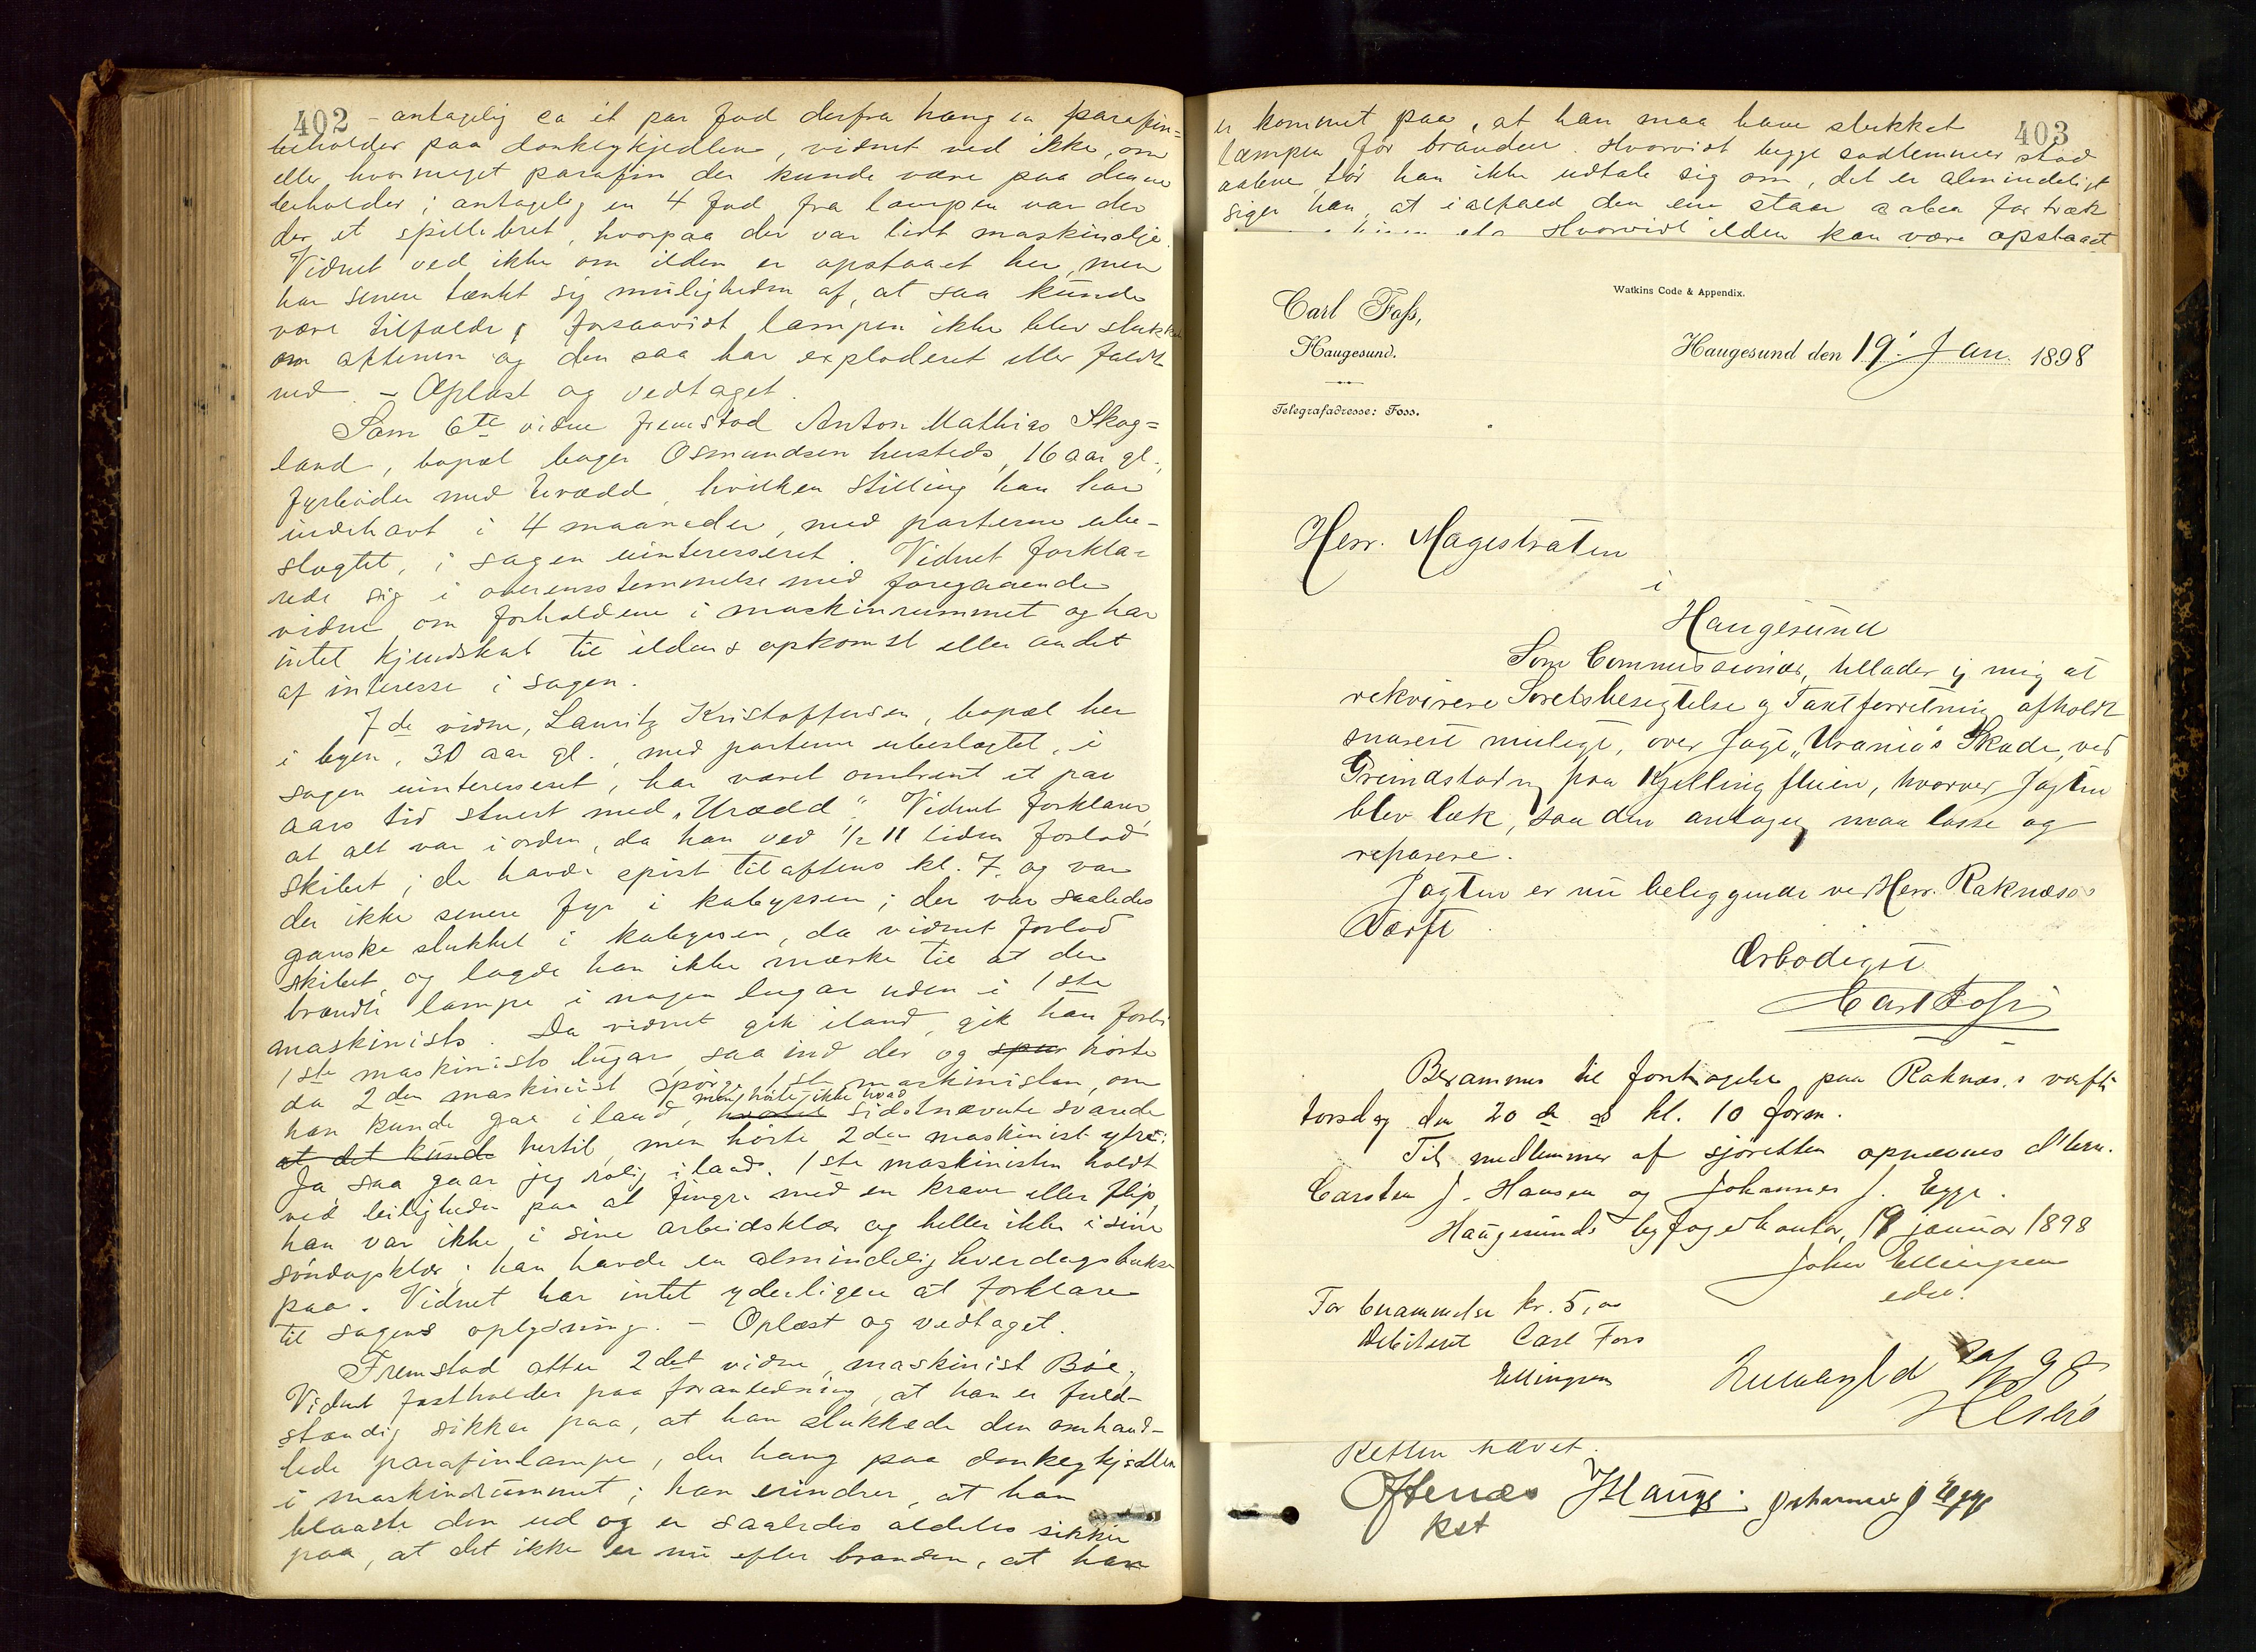 402 - antagelig ca et par fod derfra hang en parafin=
beholder paa donkeykjedlen, vidnet ved ikke, om
eller hvormeget parafin der kunde være paa denne
beholder; antagelig en 4 fod fra lampen var der
der et spillebret, hvorpaa der var lidt maskinolje.
Vidnet ved ikke om ilden er opstaaet her, men
har senere tænkt sig muligheden af, at saa kunde
være tilfælde, forsaavidt lampen ikke blev slukket
om aftenen og den saa har exploderet eller faldt
ned. - Oplæst og vedtaget.
Som 6te vidne fremstod Anton Mathias Skog=
land, bopæl bager Osmundsen hersteds, 16 aar gl.,
fyrbøder med Urædd, hvilken stilling han har
indehavt i 4 maaneder, med parterne ube-
slægtet, i sagen uinteresseret. Vidnet forkla=
rede sig i overensstemmelse med foregaaende
vidne om forholdene i maskinrummet og har
intet kjendskab til ildens opkomst eller andet
af interesse i sagen.
7de vidne, Lauritz Kristoffersen, bopæl her
i byen, 30 aar gl., med parterne ubeslægtet, i
sagen uinteresseret, har været omtrent et par
aars tid stuert med "Urædd". Vidnet forklarer,
at alt var i orden, da han ved 1/2 11 tiden forlod
skibet; de havde spist til aftens kl. 7, og var
der ikke senere fyr i kabyssen; der var saaledes
ganske slukket i kabyssen, da vidnet forlod
skibet, og lagde han ikke mærke til at der
brændte lampe i nogen lugar uden i 1ste
maskinists. Da vidnet gik iland, gik han forbi
1ste maskinists lugar, saa ind der og spur hørte
da 2den maskinist spørge 1ste maskinisten, om
men hørte ikke hvad
han kunde gaa iland, hvortil sidstnævnte svarede
at det kunde hertil, men hørte 2den maskinist ytre:
Ja saa gaar jeg rolig iland. 1ste maskinisten holdt
ved leiligheden paa at fingre med en krave eller flip,
han var ikke i sine arbeidsklær og heller ikke i sine
søndagsklær; han havde en almindelig hverdagsbukse
paa. Vidnet har intet yderligere at forklare
til sagens oplysning. - Oplæst og vedtaget.
Fremstod atter 2det vidne, maskinist Bøe,
Vidnet fastholder paa foranledning, at han er fuld-
stændig sikker paa, at han slukkede den omhand-
lede parafinlampe, der hang paa donkeykjedlen
i maskinrummet; han erindrer, at han
blaaste den ud og er saaledes aldeles sikker
paa, at det ikke er nu efter branden, at han
403
er kommet paa, at han maa have slukket
lampen før branden. Hvorvidt begge sodlemmer stod
aabne, tør han ikke udtale sig om, det er almindeligt
siger han, at ialfald den ene staar aaben for træk
Hvorvidt ilden kan være opstaaet
Watkins Code & Appendix.
Carl Foss,
Haugesund.
Haugesund den 19' Jan. 1898
Telegrafadresse: Foss.
Herr. Magestraten
i
Haugesund
Som Commissionær, tillader jeg mig at
rekvirere Søretsbesigtelse og Taxtforretning afholdt
snarest muligt, over Jagt "Urania's Skade, ved
Grundstødn paa Kjellingfluen, hvorved Jagten
blev læk, saa den antagelig maa losse og
reparere.
Jagten er nu beleggende ved Herr. Raknæs's
Værft.
Ærbødigst
Carl Foss
Berammes til foretagelse paa Raknæs's værft
torsdag den 20de ds kl. 10 form.
Til medlemmer af sjøretten opnævnes d'herr.
Carsten J. Hansen og Johannes J. Egge.
Haugesunds byfogedkontor, 19 januar 1898
John Ellingsen
edsv.
For berammelse kr. 5,00
Debiteret Carl Foss
Ellingsen
20/1 98
Retten hævet.
Johannes J Egge
kst